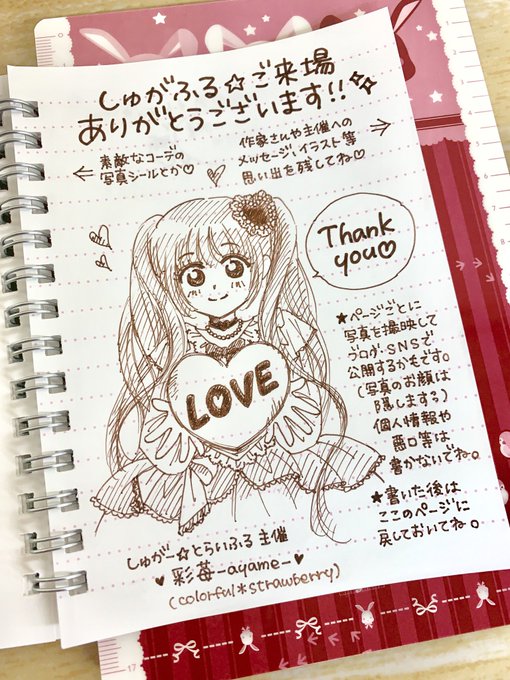 しゅがふる☆ご来場
ありがとうございます!!
素敵なコーデの
写真シールとか♡
←
作家さんや主催への
メッセージ、イラスト等
思い出を残してね♡
→
Thank
you♡
LOVE
★ページごとに
写真を撮映して
ブログ、SNSで
公開するかもです。
(写真のお顔は
隠しまする)
個人情報や
悪口等は
書かないでね。
★書いた後は
ここのページに
戻しておいてね。
しゅがー☆とらいふる 主催
♥彩苺-ayame-♥
(colorful*strawberry)